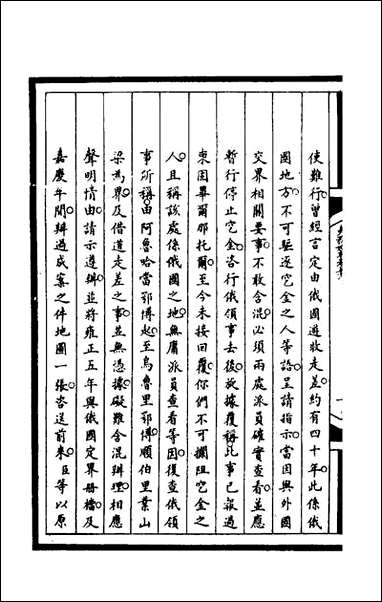 使難行曾經言定由俄國遊牧走差約有四十年此係俄
國地方不可驅逐它金之人等語呈請指示當因與外國
交界相關要事不敢含混必須兩處派員確實查看並應
暫行停止它金咨行俄領事去後旋據覆稱此事已報過
東固畢爾那托爾至今未接回覆你們不可攔阻它金之
人且稱該處係俄國之地無庸派員查看等因復查俄領
事所稱由阿魯哈當鄂博起至烏魯里鄂博順伯里葉山
梁為界及借道走差之事並無憑據礙難含混辨理相應
聲明情由請示遵辨並將雍正五年與俄國定界冊檔及
嘉慶年間辨過成案之件地圖一張咨送前來臣等以原